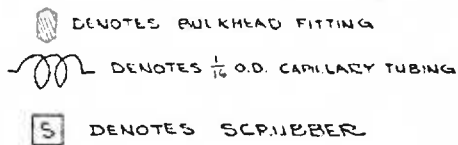 DENOTES BULKHEAD FITTING
DENOTES 1/16 O.D. CAPILLARY TUBING
S DENOTES SCRUBBER